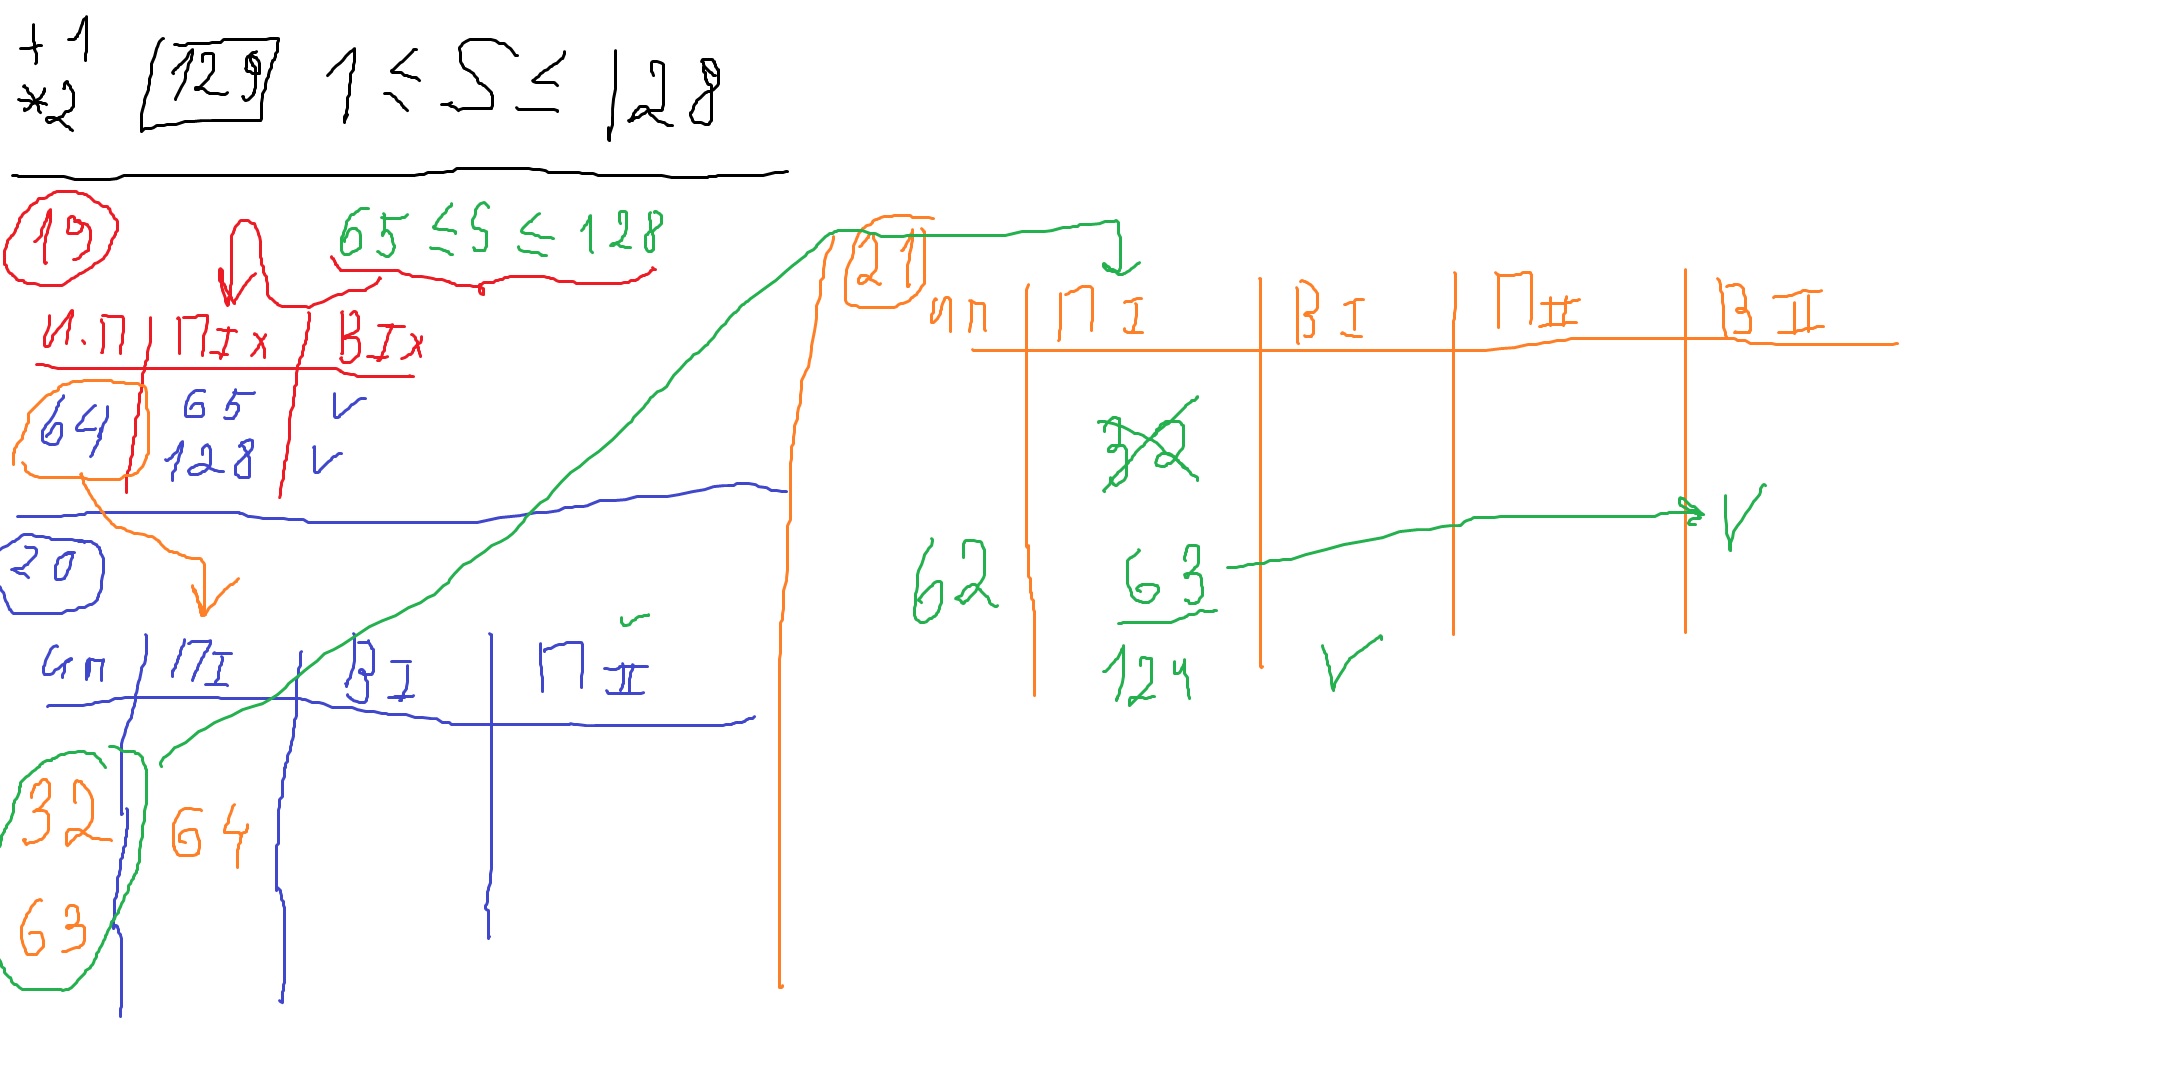 +1
*2
129 1 ≤ S ≤ 128
19 65 ≤ S ≤ 128
И.П ПIх ВIх
64 65 V
128 V
20
ип ПI ВI ПII
32 64
63
21
ип ПI ВI ПII ВII
32
62 63 V
124 V